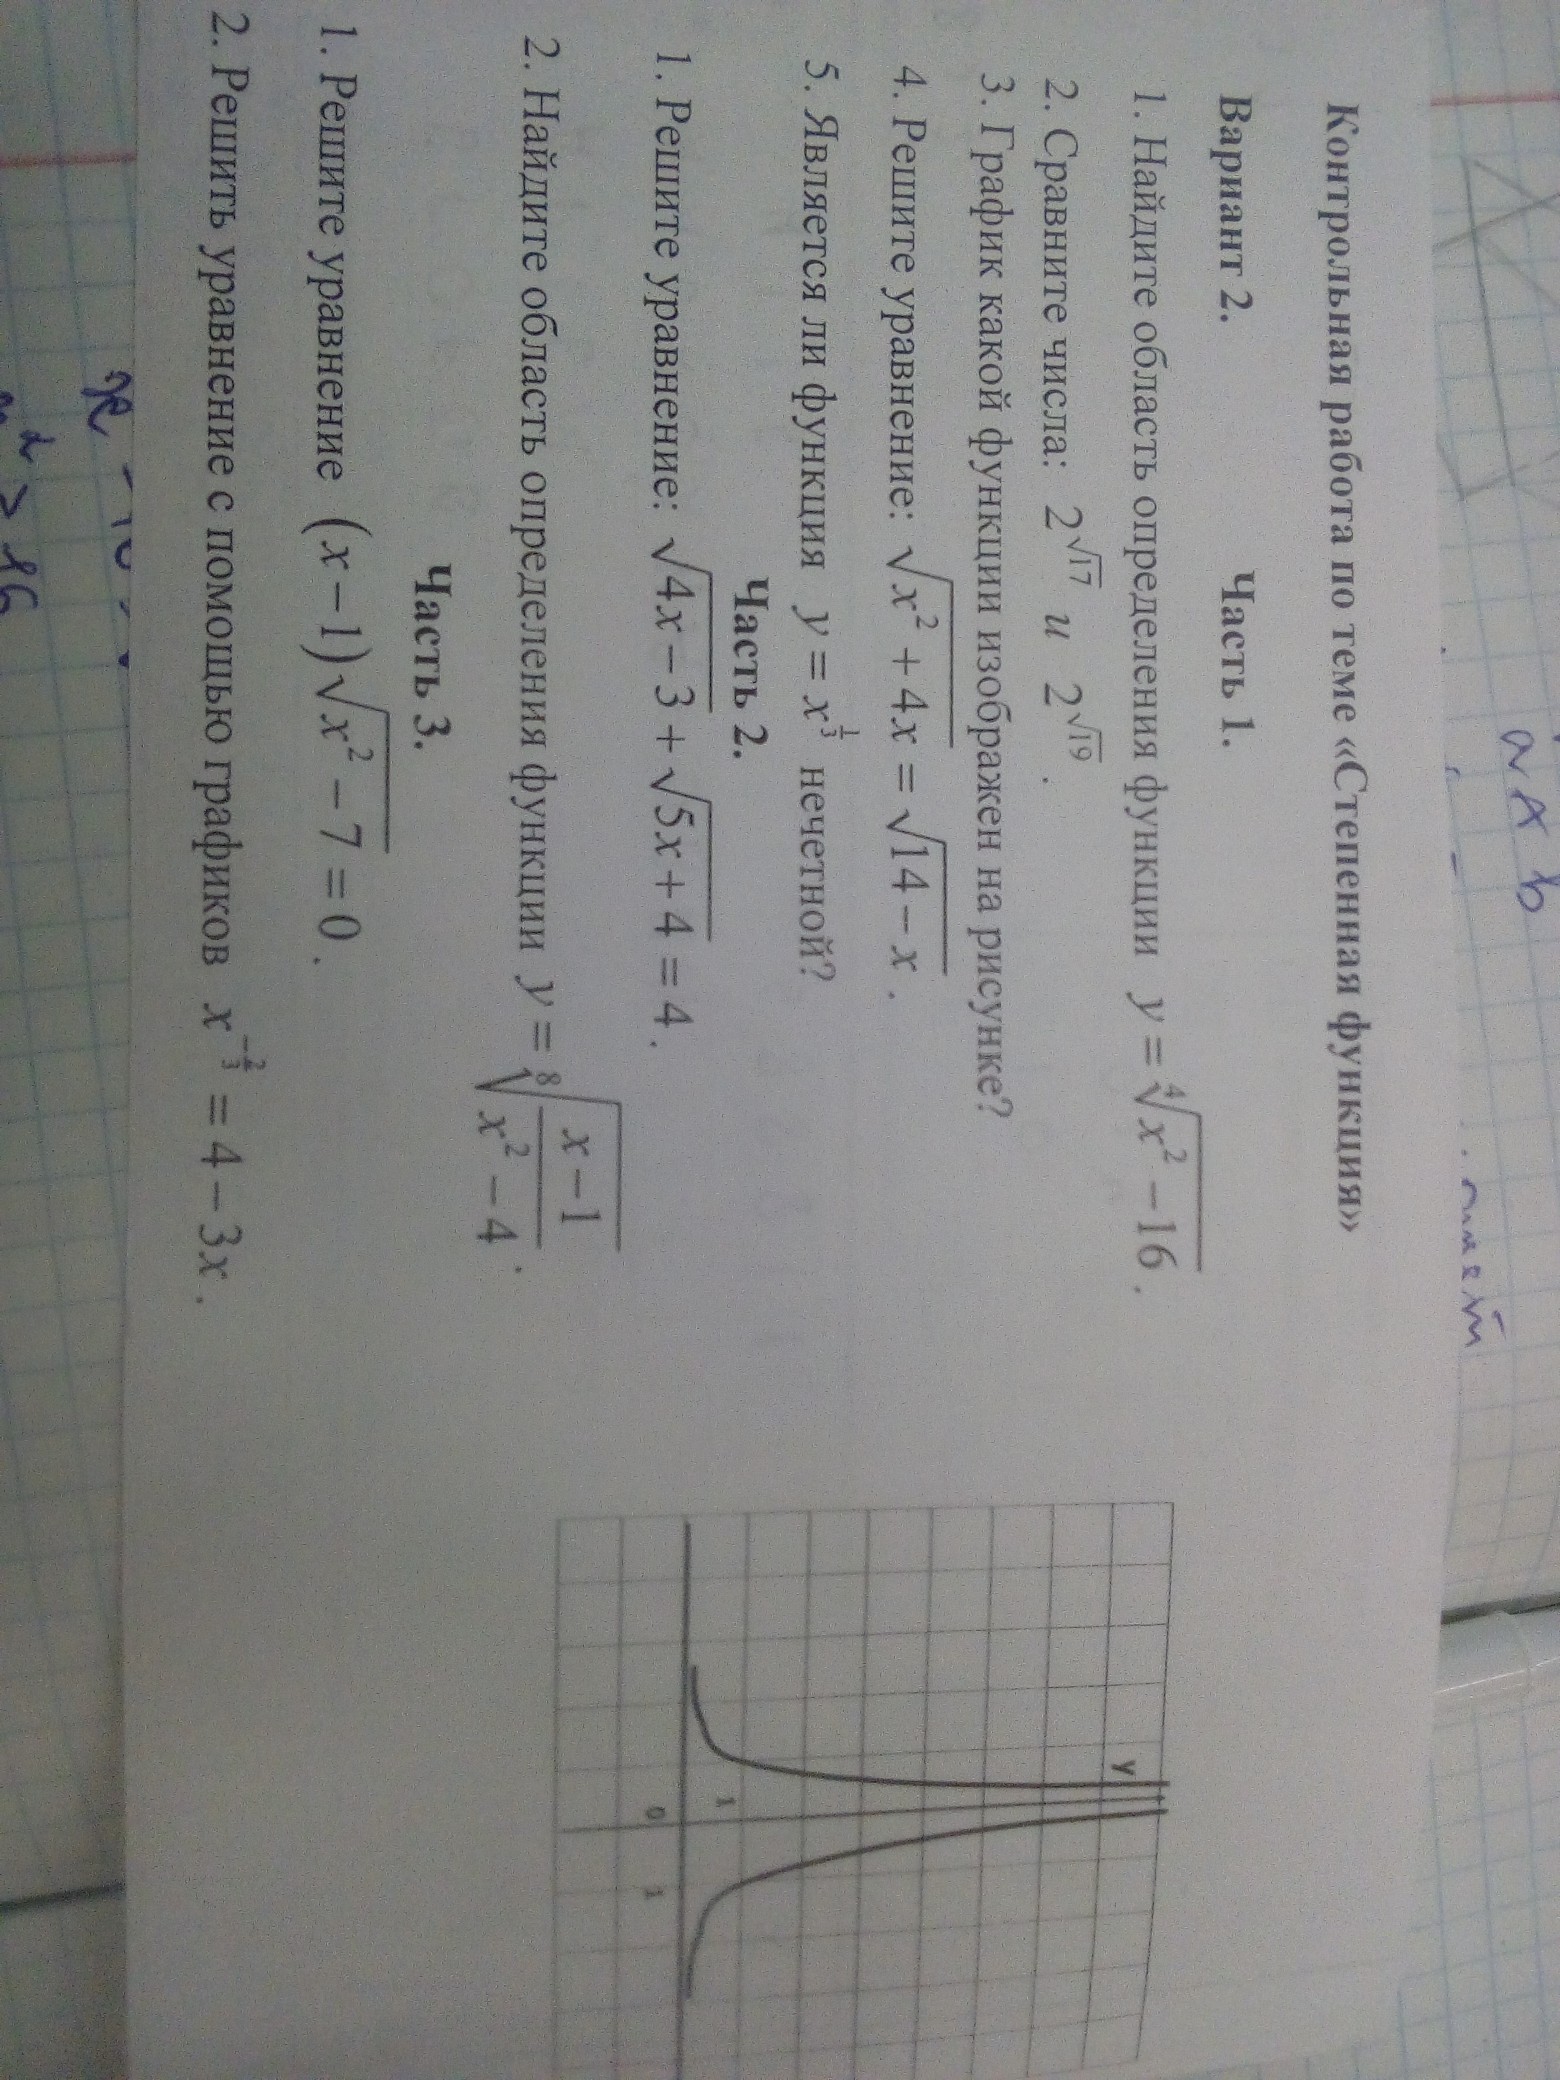 a x b
Контрольная работа по теме «Степенная функция»
Вариант 2. Часть 1.
1. Найдите область определения функции y = ⁴√(x² − 16) .
2. Сравните числа: 2^√17 и 2^√19 .
3. График какой функции изображен на рисунке?
4. Решите уравнение: √(x² + 4x) = √(14 − x) .
5. Является ли функция y = x^(1/3) нечетной?
Часть 2.
1. Решите уравнение: √(4x − 3) + √(5x + 4) = 4 .
2. Найдите область определения функции y = ⁸√((x − 1)/(x² − 4)) .
Часть 3.
1. Решите уравнение (x − 1)√(x² − 7) = 0 .
2. Решить уравнение с помощью графиков x^(−2/3) = 4 − 3x .
y
1
0
1
> 16